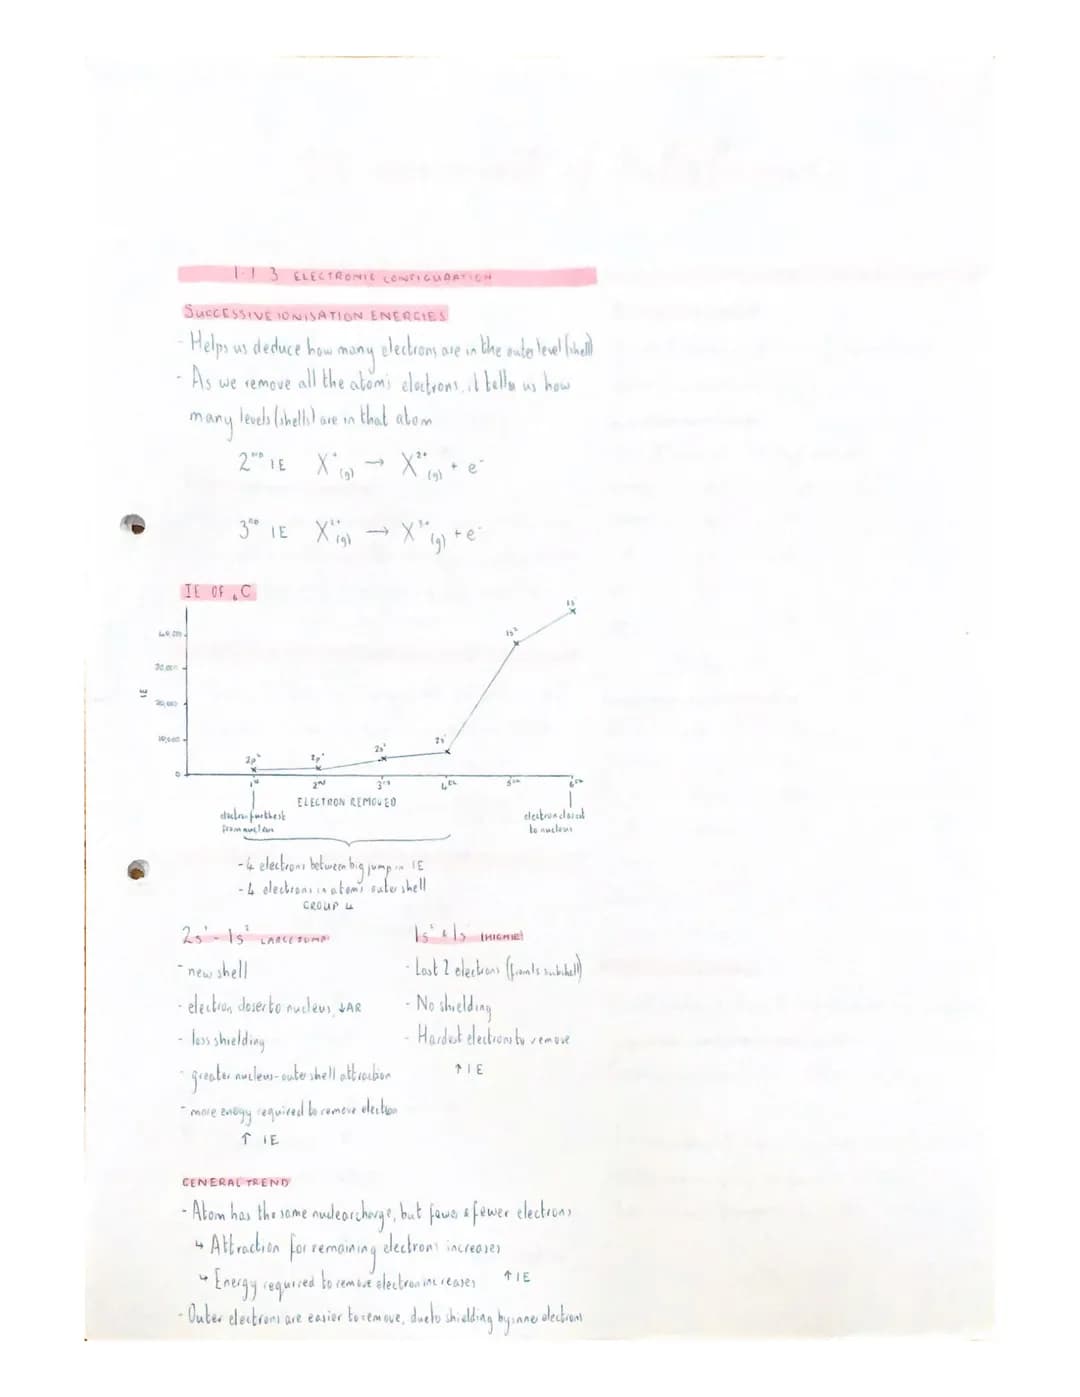 1.1.3 ELECTRONIC CONFIGURATION
SUCCESSIVE IONISATION ENERGIES
- Helps us deduce how many electrons are in the outer level (shell)
- As we remove all the atoms electrons, it tells us how
many levels (shells) are in that atom
2ND IE X⁺(g) → X²⁺(g) + e⁻
3RD IE X²⁺(g) → X³⁺(g) + e⁻
IE OF ₆C
1s¹
40,000
1s²
30,000
IE
20,000
10,000
2p²
2p¹
2s²
2s¹
0
1st 2nd 3rd 4th 5th 6th
ELECTRON REMOVED
electron furthest
from nucleus
electron closest
to nucleus
- 4 electrons between big jump in IE
- 4 electrons in atoms outer shell
GROUP 4
2s¹ - 1s² LARGE JUMP
- new shell
- electron closer to nucleus, ↓AR
- less shielding
- greater nucleus-outer shell attraction
- more energy required to remove electron
↑ IE
1s² & 1s¹ (HIGH IE)
- Last 2 electrons (from 1s subshell)
- No shielding
- Hardest electrons to remove
↑ IE
GENERAL TREND
- Atom has the same nuclear charge, but fewer & fewer electrons
↳ Attraction for remaining electrons increases
↳ Energy required to remove electron increases ↑IE
- Outer electrons are easier to remove, due to shielding by inner electrons